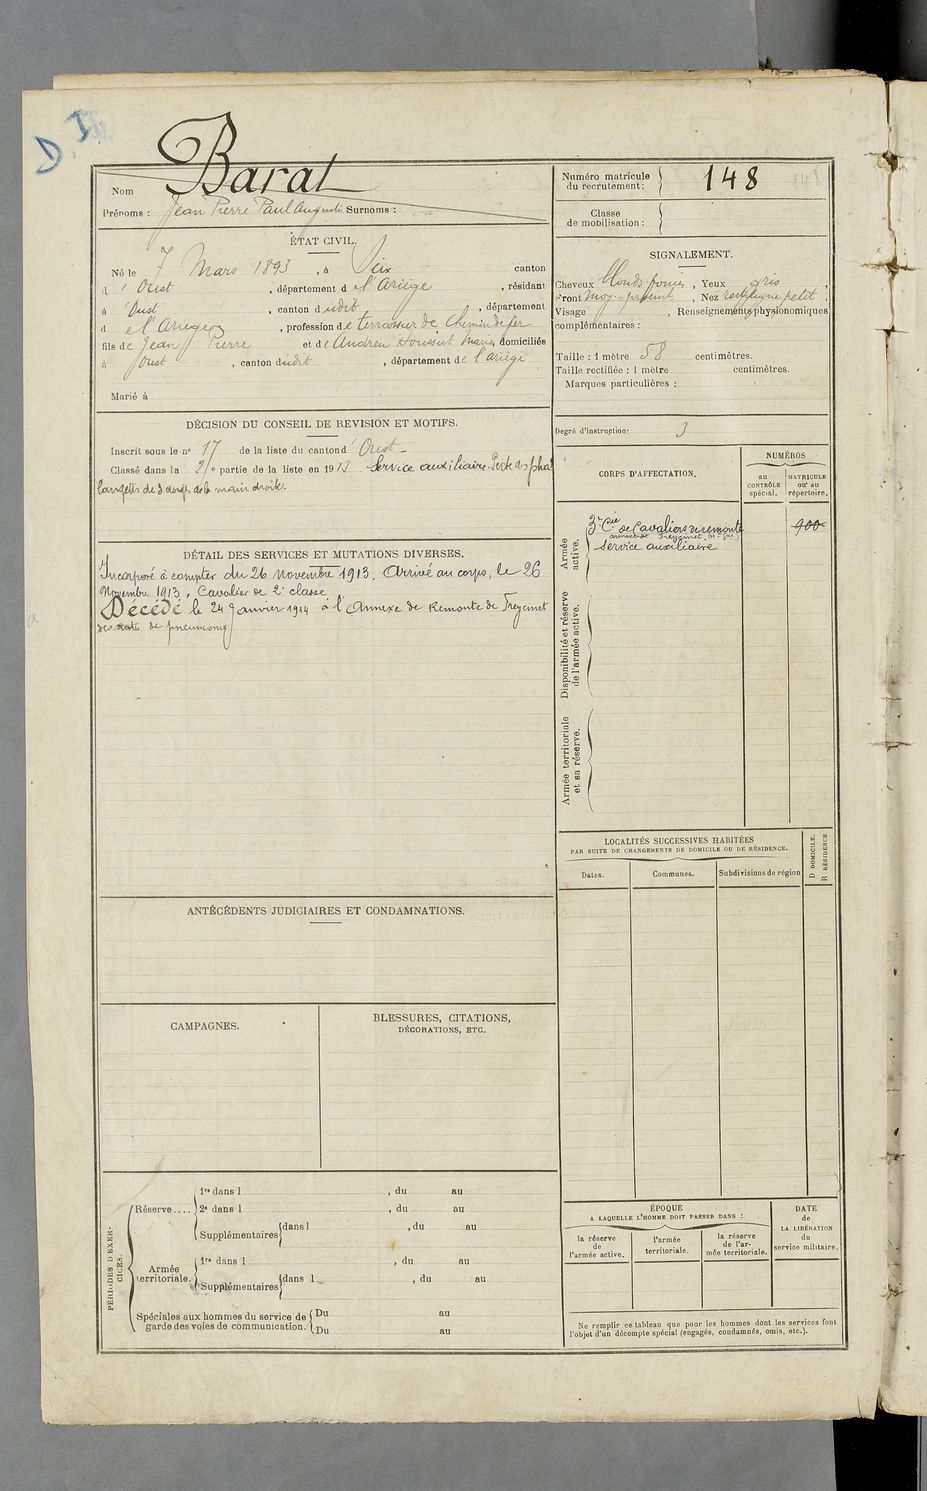 D. I
Barat
Nom
Prénoms : Jean Pierre Paul Auguste Surnoms :
Numéro matricule du recrutement : 148
Classe de mobilisation :
ÉTAT CIVIL.
Né le 7 Mars 1893, à Seix canton
d' Oust, département de l'Ariège, résidant
à Oust, canton dudit, département
de l'Ariège, profession de terrassier de chemin de fer
fils de Jean Pierre et de domiciliés
à Oust, canton dudit, département de l'Ariège
Marié à
SIGNALEMENT.
Cheveux blonds, Yeux gris,
Front moy., Nez rectiligne petit.
Visage, Renseignements physionomiques
complémentaires :
Taille : 1 mètre 58 centimètres.
Taille rectifiée : 1 mètre centimètres.
Marques particulières :
Degré d'instruction : 3
DÉCISION DU CONSEIL DE REVISION ET MOTIFS.
Inscrit sous le n° 17 de la liste du canton d' Oust
Classé dans la 2e partie de la liste en 1913 Service auxiliaire. Perte des pha
langettes de 3 doigts de la main droite.
DÉTAIL DES SERVICES ET MUTATIONS DIVERSES.
Incorporé à compter du 26 novembre 1913. Arrivé au corps, le 26
Novembre 1913, Cavalier de 2e classe.
Décédé le 24 Janvier 1914 à l'Annexe de Remonte de Freycinet
de pneumonie
CORPS D'AFFECTATION.
NUMÉROS
au CONTRÔLE spécial.
MATRICULE ou au répertoire.
Armée active.
3e Cie de Cavaliers de remonte
service auxiliaire
900
Disponibilité et réserve de l'armée active.
Armée territoriale et sa réserve.
LOCALITÉS SUCCESSIVES HABITÉES
PAR SUITE DE CHANGEMENTS DE DOMICILE OU DE RÉSIDENCE.
Dates.
Communes.
Subdivisions de région
D DOMICILE.
R RÉSIDENCE
ANTÉCÉDENTS JUDICIAIRES ET CONDAMNATIONS.
CAMPAGNES.
BLESSURES, CITATIONS,
DÉCORATIONS, ETC.
PÉRIODES D'EXERCICES.
Réserve....
1re dans l , du au
2e dans l , du au
Supplémentaires dans l , du au
Armée territoriale.
1re dans l , du au
Supplémentaires dans l , du au
Spéciales aux hommes du service de
garde des voies de communication.
Du au
Du au
ÉPOQUE
A LAQUELLE L'HOMME DOIT PASSER DANS :
la réserve de l'armée active.
l'armée territoriale.
la réserve de l'armée territoriale.
DATE de LA LIBÉRATION du service militaire.
Ne remplir ce tableau que pour les hommes dont les services font
l'objet d'un décompte spécial (engagés, condamnés, omis, etc.).